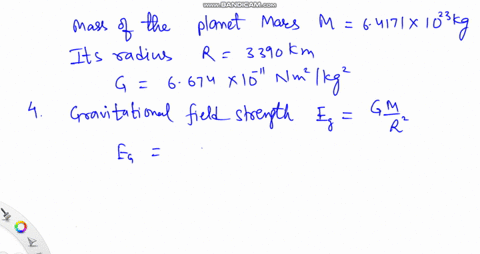 WWW.BANDICAM.COM
mass of the planet Mars M = 6.4171 × 10²³ kg
Its radius R = 3390 Km
G = 6.674 × 10⁻¹¹ Nm²/kg²
4. Gravitational field strength E_g = G M/R²
E_g =